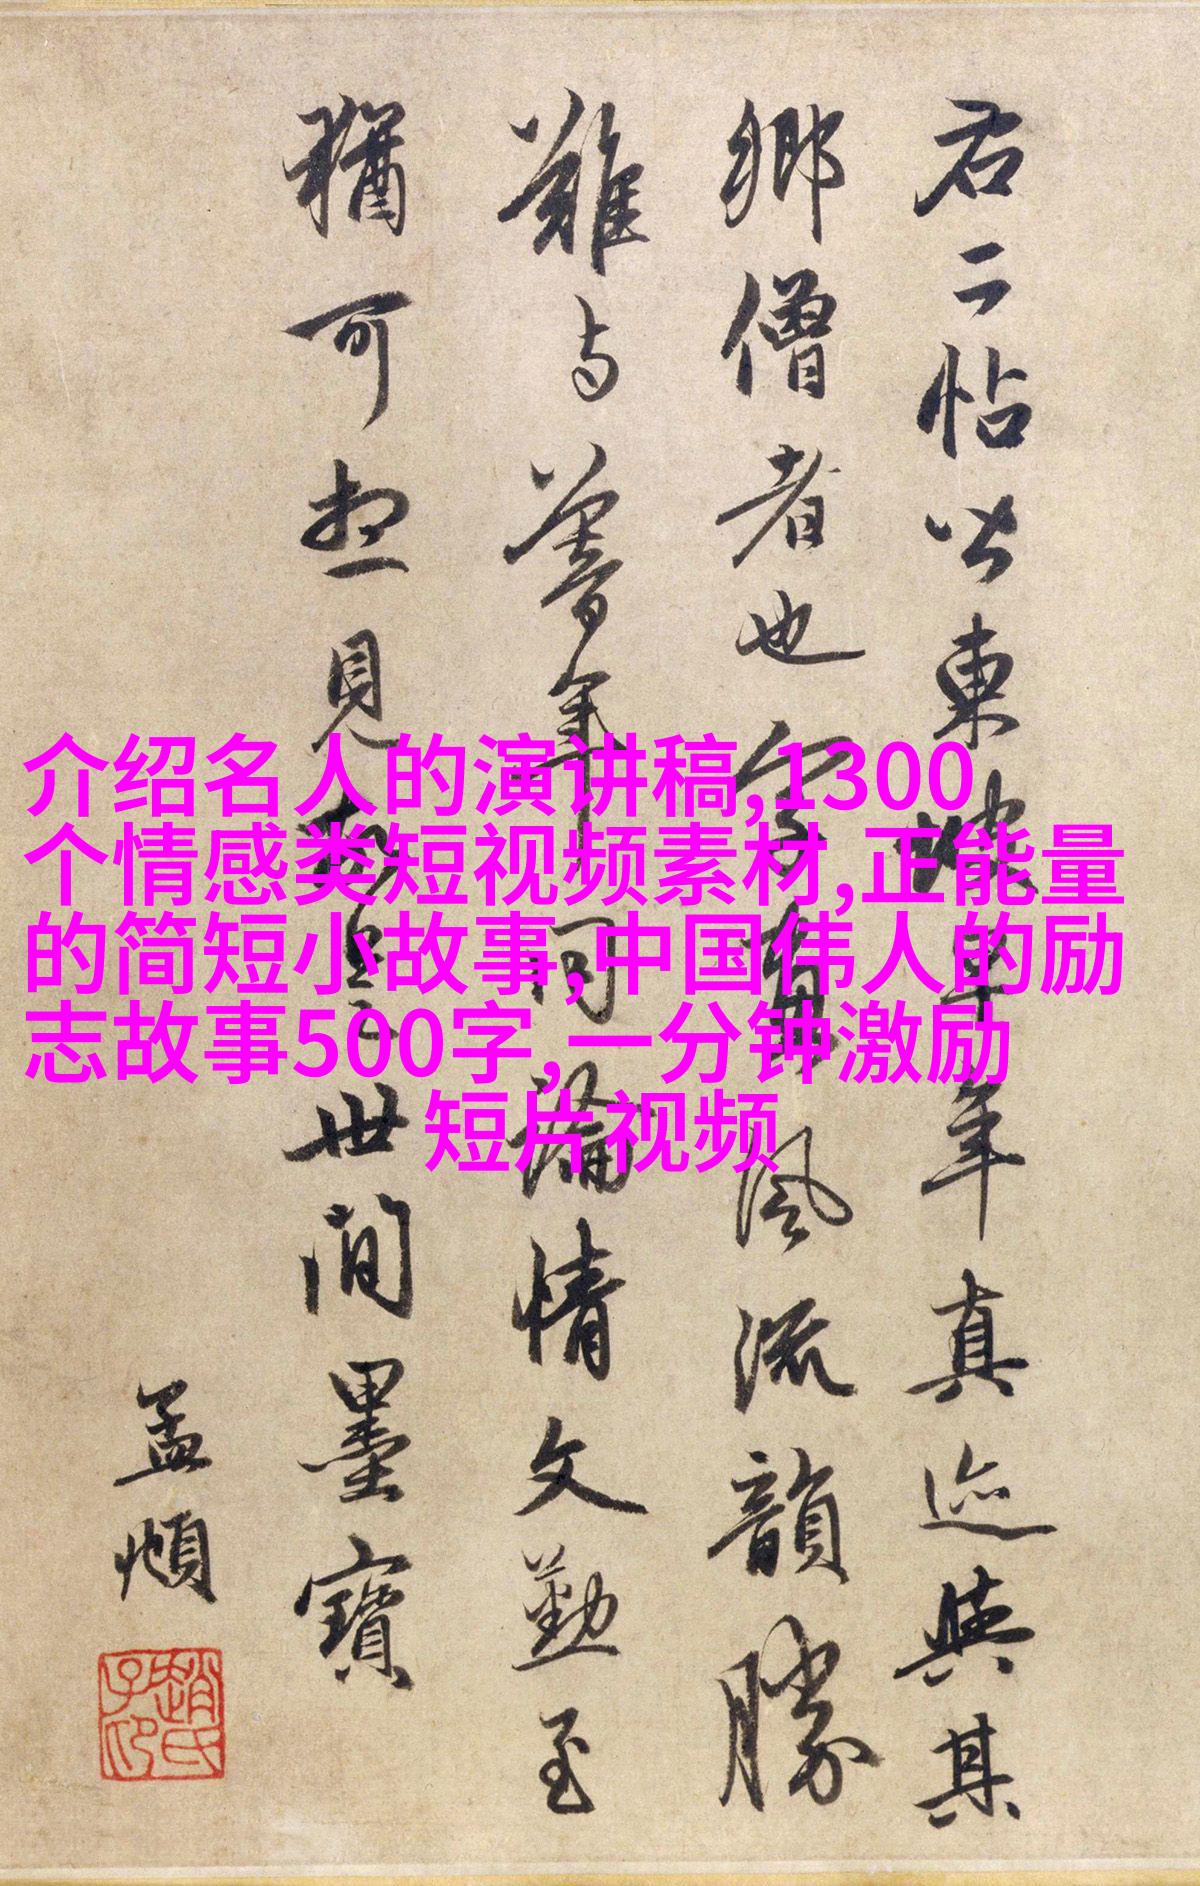 右二帖皆東坡早年真迹與其
鄉僧者也字有風流韻勝
難与暮年同論情文勤至
猶可想見故是世間墨寶
孟頫
趙氏子昂
介绍名人的演讲稿,1300
个情感类短视频素材,正能量
的简短小故事,中国伟人的励
志故事500字,一分钟激励
短片视频